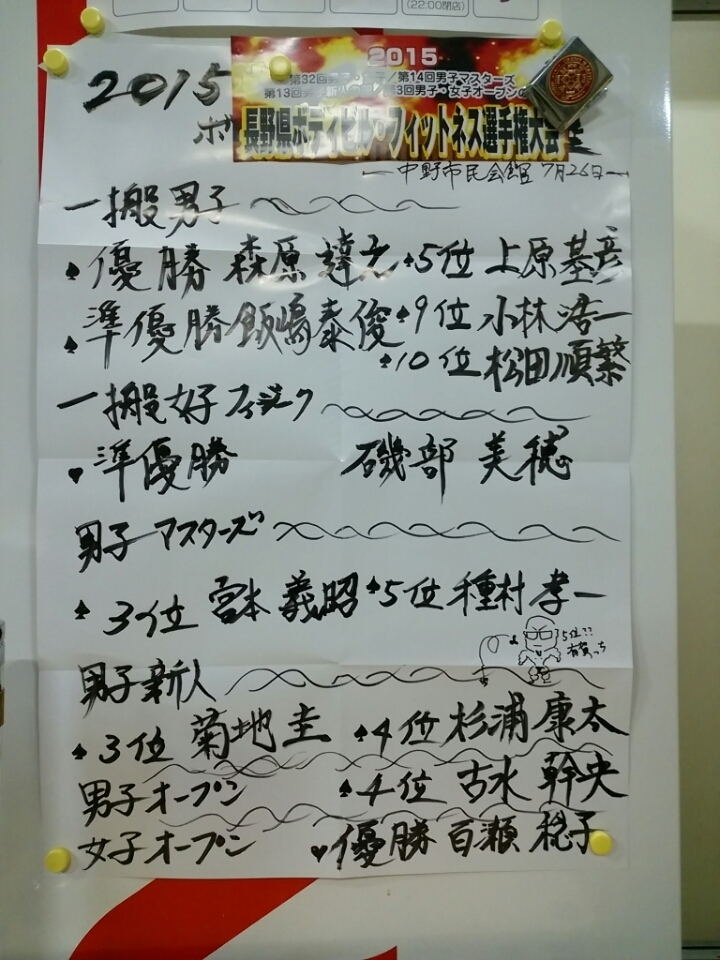 (22:00閉店)
2015
2015
第32回男子・女子/第14回男子マスターズ
第13回男子新人の部/第3回男子・女子オープンの
長野県ボディビル・フィットネス選手権大会
中野市民会館 7月26日
一般男子
♠優勝 森原達也 ♠5位 上原基彦
♠準優勝 飯嶋泰俊 ♠9位 小林浩一
♠10位 松田順繁
一般女子フィジーク
♥準優勝 磯部 美穂
男子マスターズ
♠3位 宮本義昭 ♠5位 種村孝一
5位??
有賀っち
男子新人
♠3位 菊地圭 ♠4位 杉浦康太
男子オープン ♠4位 古水幹央
女子オープン ♥優勝 百瀬 稔子